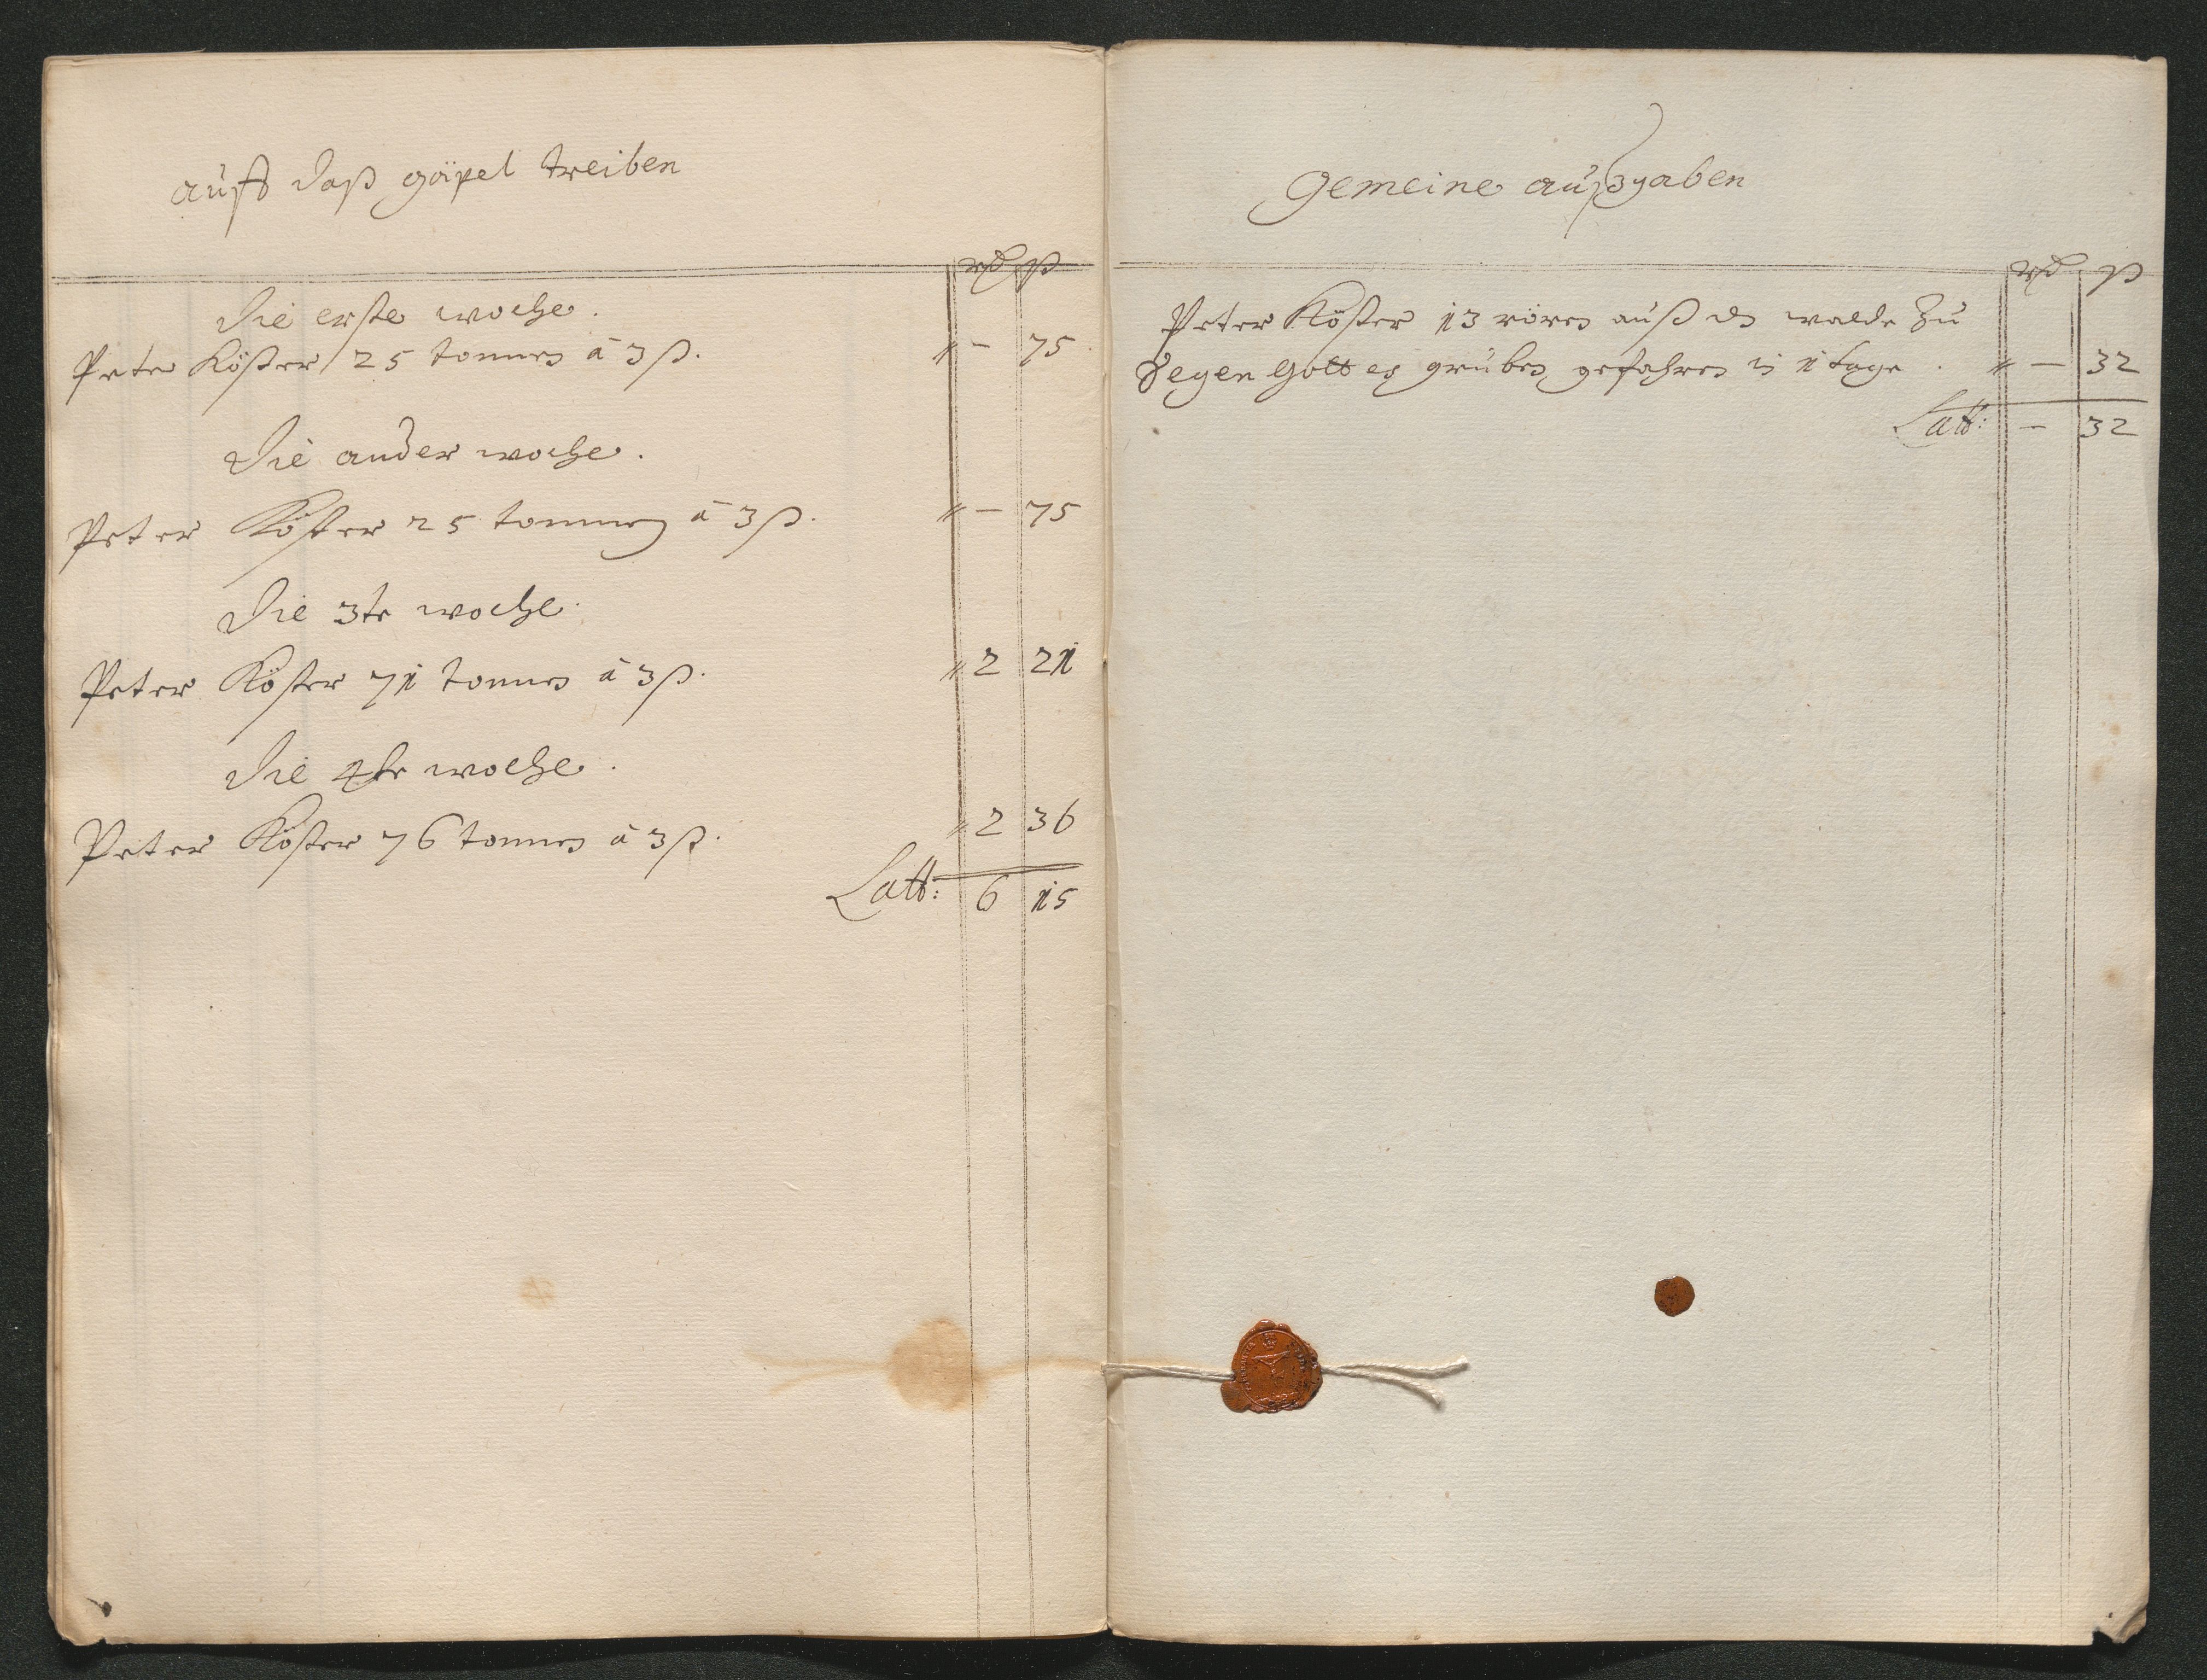 auff daß göipel treiben
rd ß
Die erste woche.
Peter Köster 25 tonnen à 3 ß. " – 75
Die ander woche.
Peter Köster 25 tonnen à 3 ß. " – 75
Die 3te woche.
Peter Köster 71 tonnen à 3 ß. " 2 21
Die 4te woche.
Peter Köster 76 tonnen à 3 ß. " 2 36
Latt: 6 15
Gemeine außgaben
rd ß
Peter Köster 13 rören auß den walde zu
Segen Gottes gruben gefahren in 1 tage. " – 32
Latt: – 32